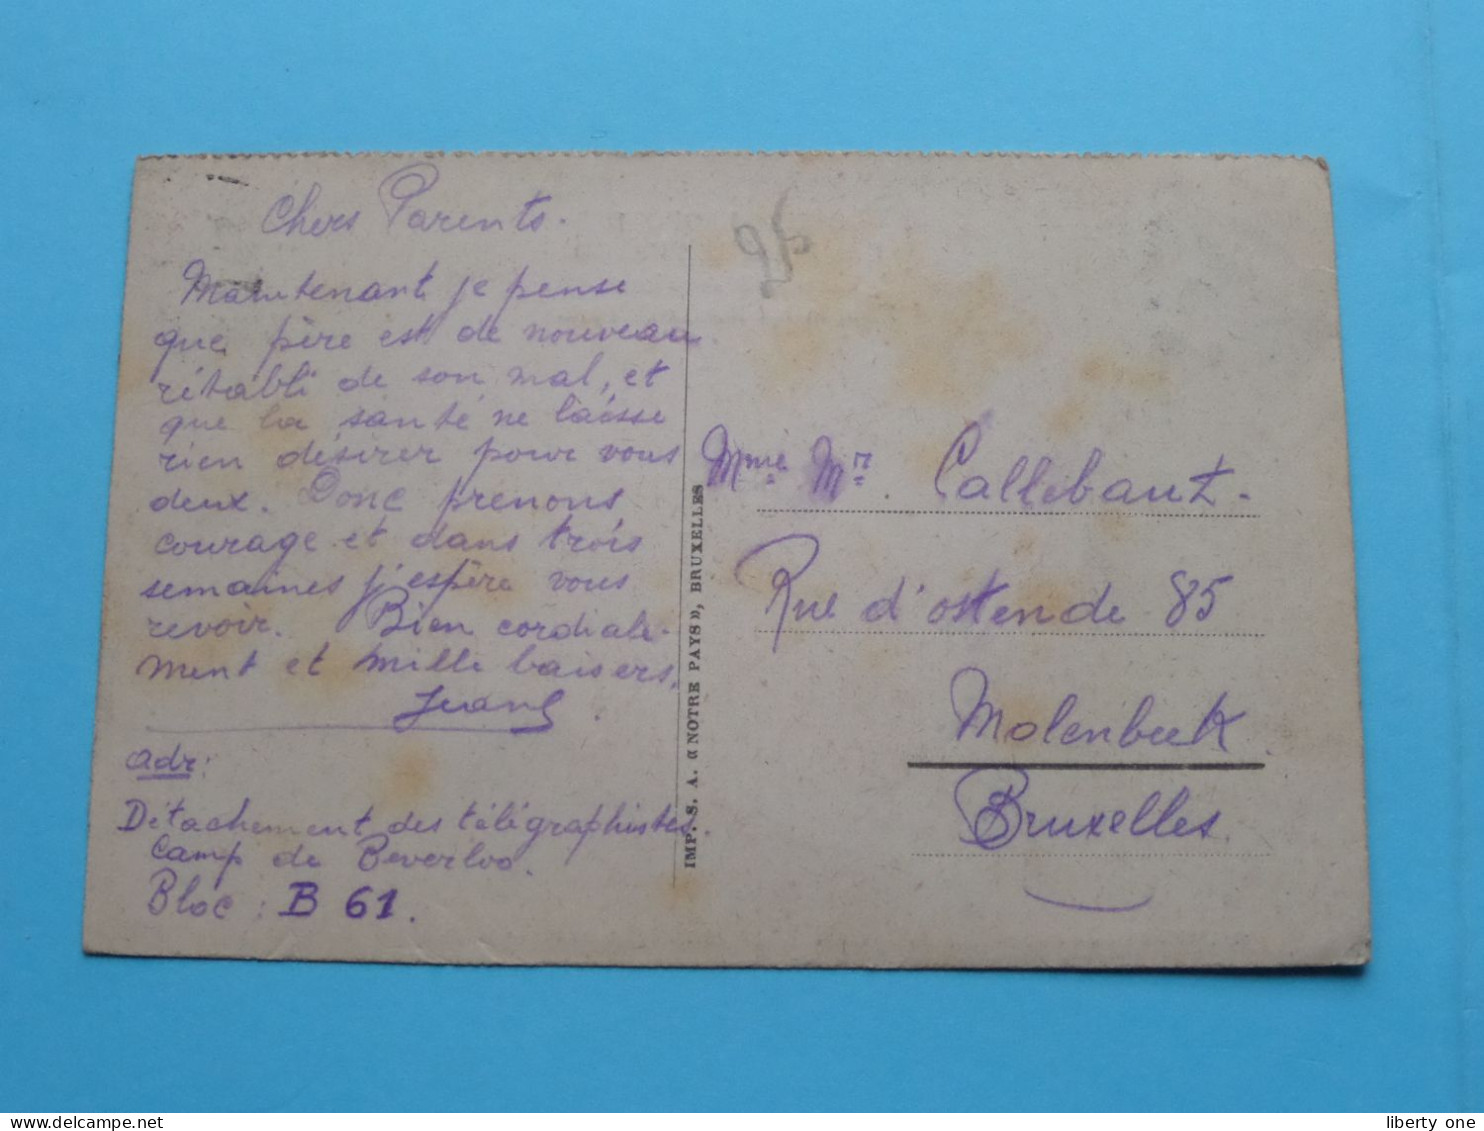 Chers Parents.
Maintenant je pense
que père est de nouveau
rétabli de son mal, et
que la santé ne laisse
rien désirer pour vous
deux. Donc prenons
courage et dans trois
semaines j'espère vous
revoir. Bien cordiale-
ment et mille baisers.
adr:
Détachement des télégraphistes.
Camp de Beverloo.
Bloc : B 61.
IMP. S. A. « NOTRE PAYS », BRUXELLES
Mme Mr. Callebaut.
Rue d'ostende 85
Molenbeek
Bruxelles
liberty one